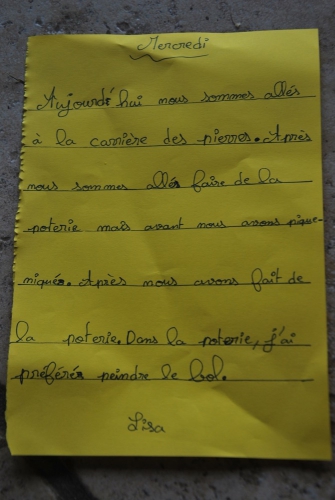 Mercredi
Aujourd'hui nous sommes allés
à la carrière des pierres. Après
nous sommes allés faire de la
poterie mais avant nous avons pique-
niqués. Après nous avons fait de
la poterie. Dans la poterie, j'ai
préférés peindre le bol.
Lisa